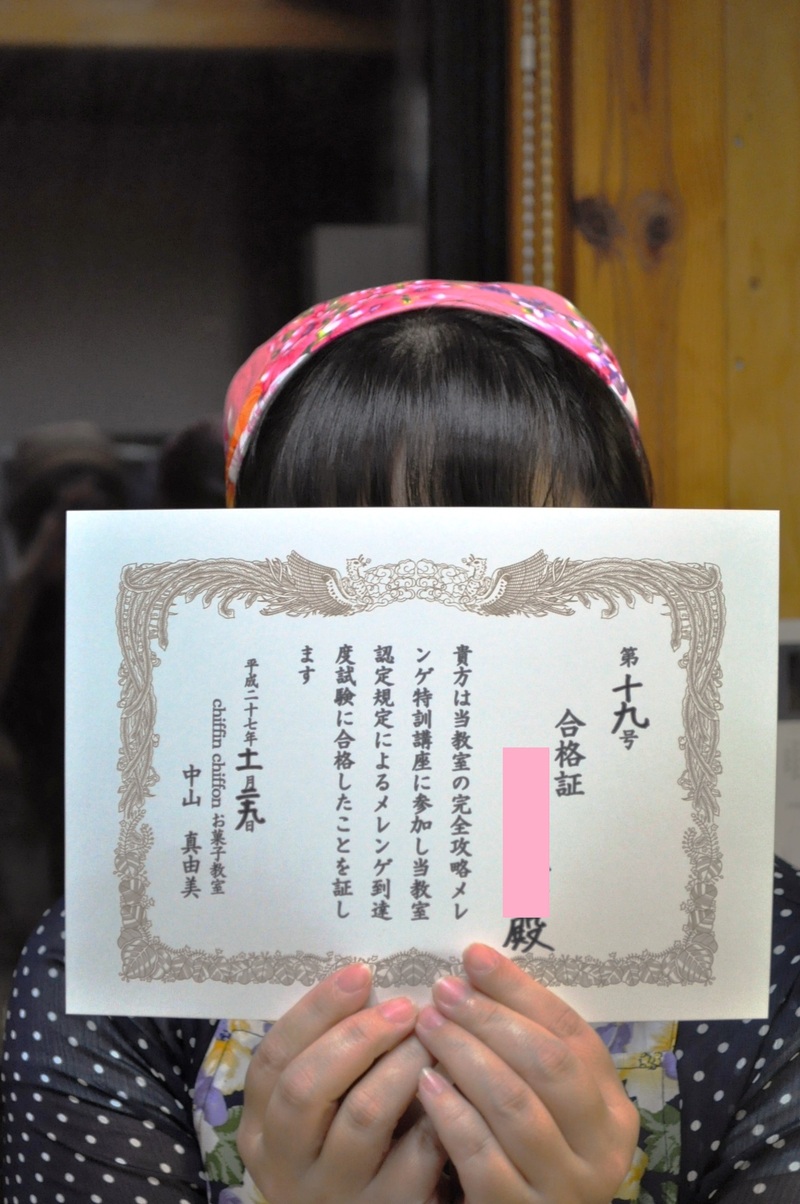 第十九号
合格証
殿
貴方は当教室の完全攻略メレ
ンゲ特訓講座に参加し当教室
認定規定によるメレンゲ到達
度試験に合格したことを証し
ます
平成二十七年十一月二十九日
chiffin chiffon お菓子教室
中山 真由美